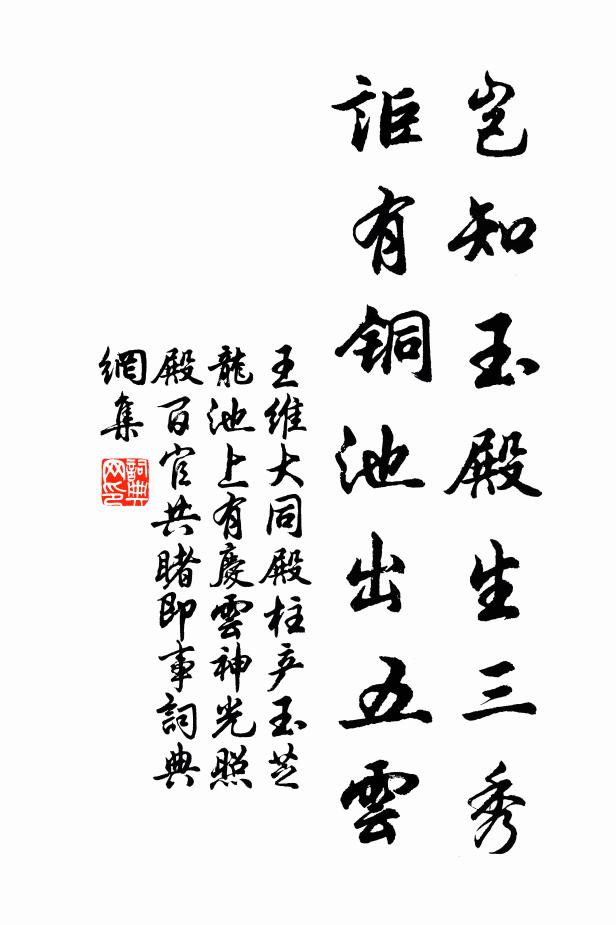 岂知玉殿生三秀
詎有銅池出五雲
王維大同殿柱产玉芝
龍池上有慶雲神光照
殿百官共睹即事詞典
網集
詞典网印